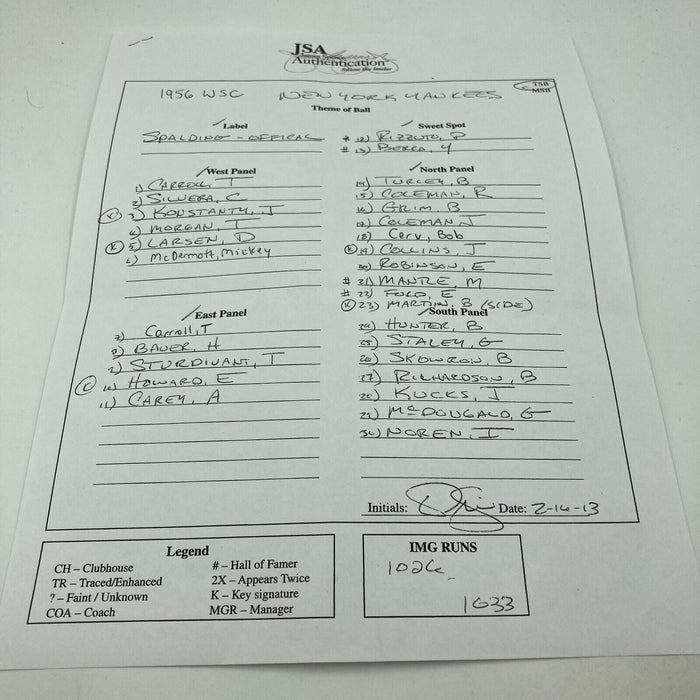 JSA
Authentication
1956 WSC NEW YORK YANKEES
TSB
MSB
Theme of Ball
Label
SPALDING - OFFICAL
Sweet Spot
# 12) RIZZUTO, P
# 13) BERRA, Y
West Panel
1) CARROLL, T
2) SILVERA, C
K 3) KONSTANTY, J
4) MORGAN, T
K 5) LARSEN, D
6) McDermott, Mickey
North Panel
14) TURLEY, B
15) COLEMAN, R
16) GRIM B
17) COLEMAN J
18) Cerv, Bob
K 19) COLLINS, J
20) ROBINSON, E
# 21) MANTLE, M
# 22) FORD, E
K 23) MARTIN, B (SIDE)
East Panel
7) Carroll, T
8) BAUER, H
9) STURDIVANT, T
K 10) HOWARD, E
11) CAREY, A
South Panel
24) HUNTER, B
25) STALEY, G
26) SKOWRON, B
27) RICHARDSON, B
28) KUCKS, J
29) McDOUGALD, G
30) NOREN, I
Initials: Date: 2-16-13
Legend
CH – Clubhouse
TR – Traced/Enhanced
? – Faint / Unknown
COA – Coach
# – Hall of Famer
2X – Appears Twice
K – Key signature
MGR – Manager
IMG RUNS
1026
1033